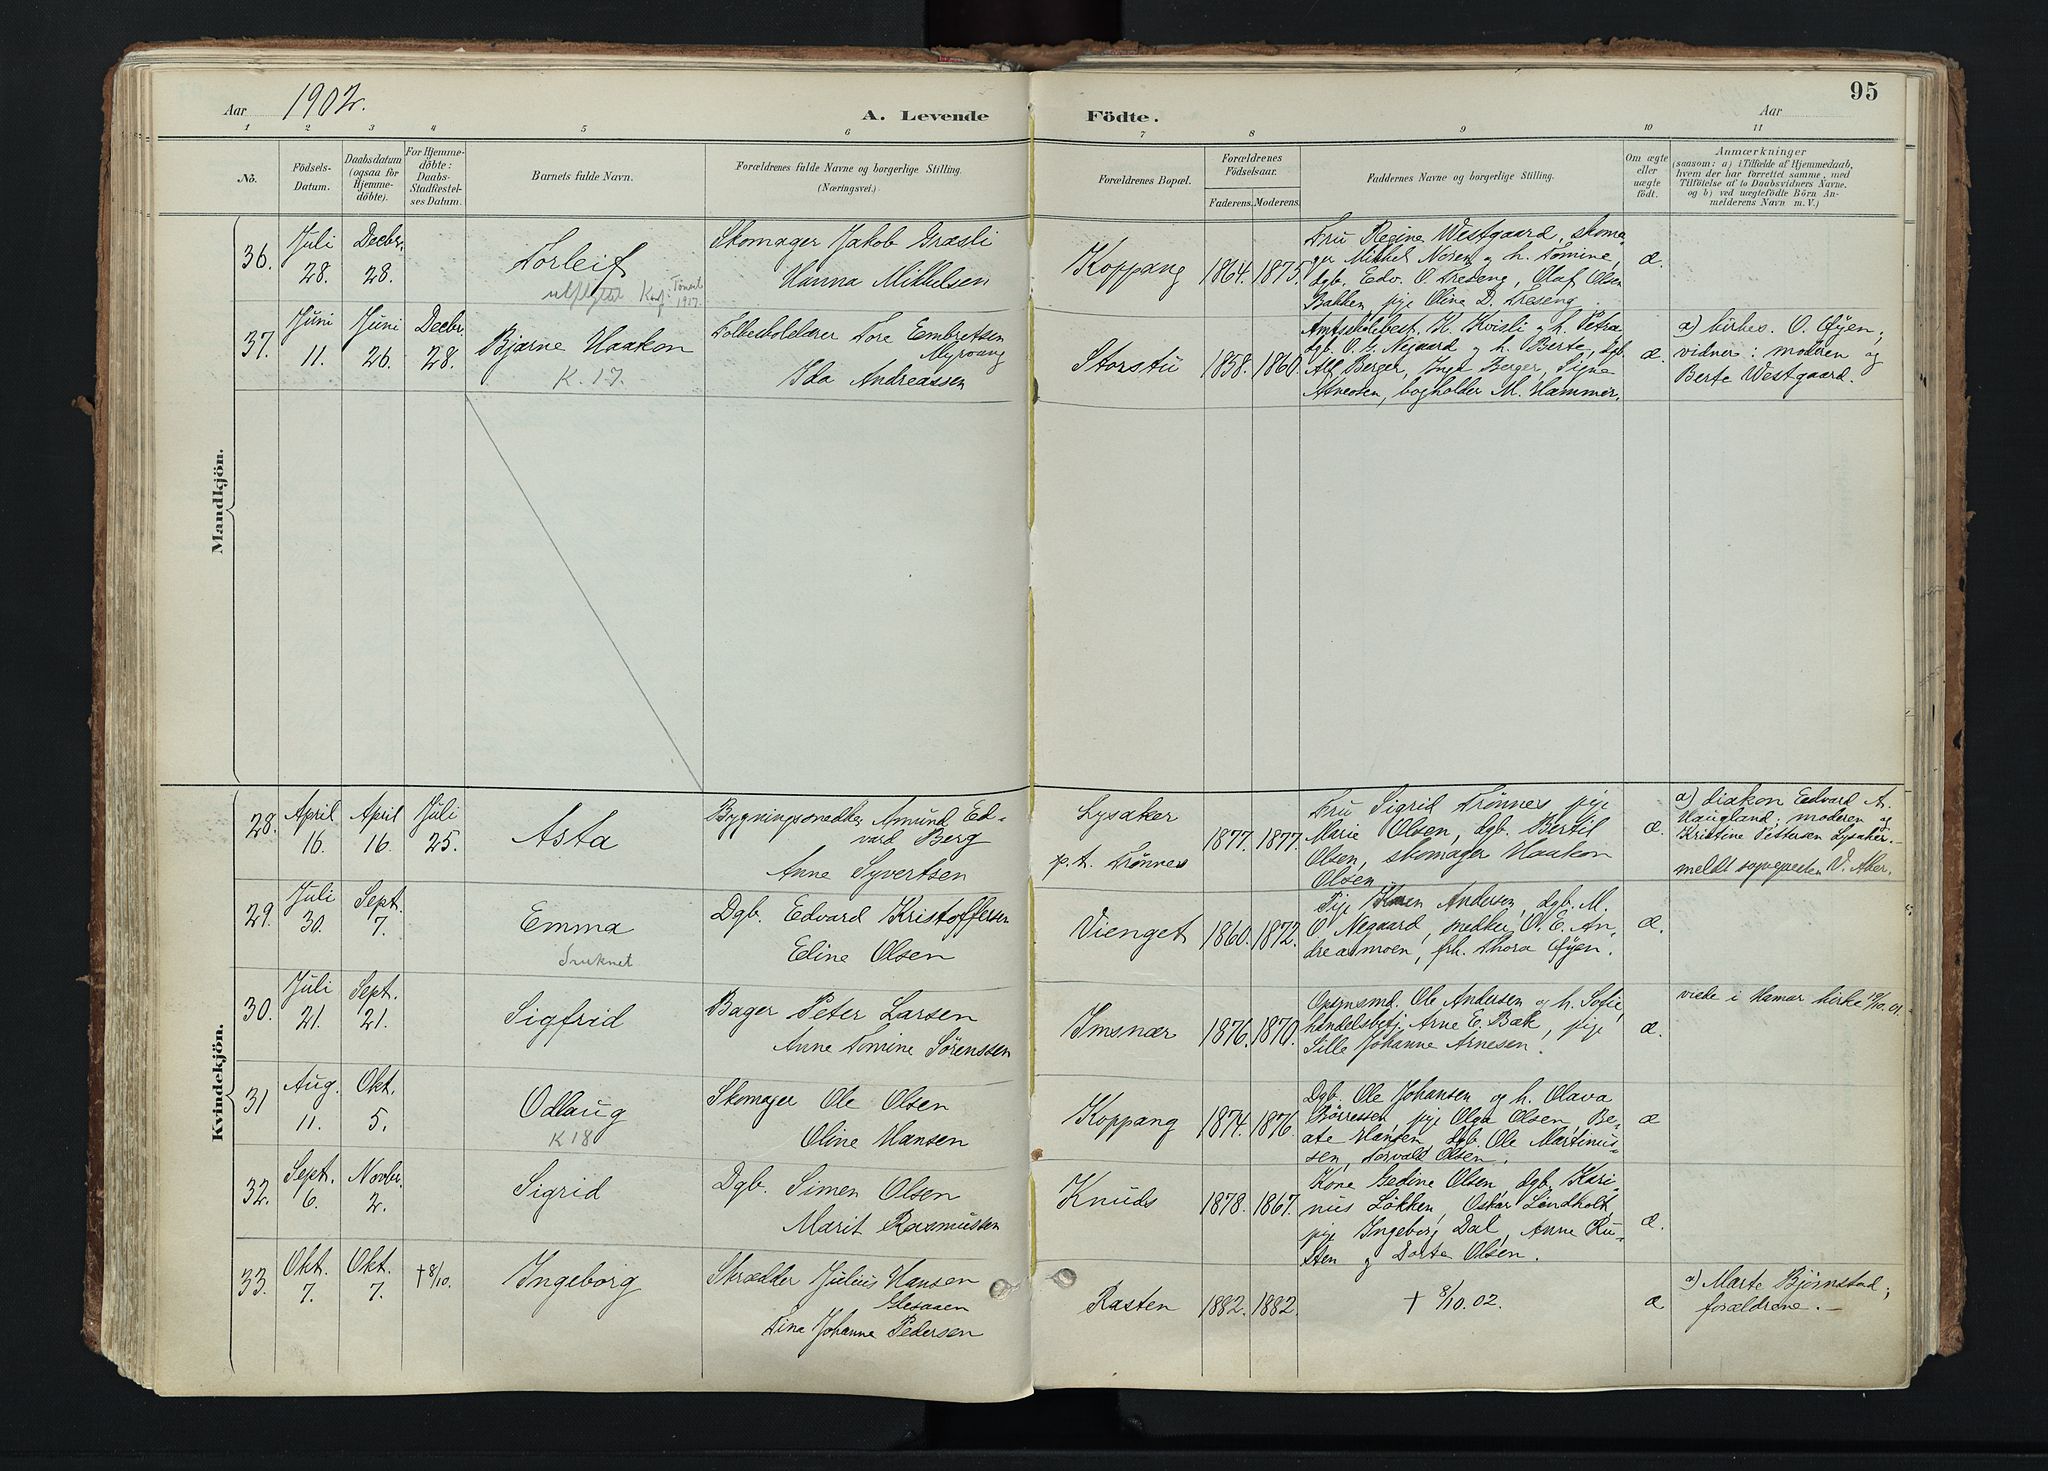 Aar 1902.
A. Levende
Födte.
Aar
95
1 2 3 4 5 6 7 8 9 10 11
Nô.
Födsels-
Datum.
Daabsdatum
(ogsaa for
Hjemme-
döbte).
For Hjemme-
döbte:
Daabs-
Stadfæstel-
ses Datum.
Barnets fulde Navn.
Forældrenes fulde Navne og borgerlige Stilling.
(Næringsvei.)
Forældrenes Bopæl.
Forældrenes
Födselsaar.
Faderens. Moderens.
Faddernes Navne og borgerlige Stilling.
Om ægte
eller
uægte
födt.
Anmærkninger
(saasom: a) i Tilfælde af Hjemmedaab,
hvem der har forrettet samme, med
Tilföielse af to Daabsvidners Navne.
og b) ved uægtefödte Börn An-
melderens Navn m. V.)
Mandkjön.
36.
Juli
28.
Decbr.
28.
Torleif
utflyttet Konf: Tönset
1917.
Skomager Jakob Græsli
Hanna Mikkelsen
Koppang
1864. 1875.
Fru Regine Westgaard, skoma-
ger Mikkel Noren og h. Tomine,
dgb. Edv. O. Treseng, Olaf Olsen
Bakken, pige Oline D. Treseng.
æ.
37.
Juni
11.
Juni
26.
Decbr
28.
Bjarne Haakon
K. 17.
Folkeskolelærer Tore Embretsen
Myrvang
Ida Andreassen
Storstu
1858. 1860.
Amtsskolebest. K. Kvisli og h. Petra
dgb. O. G. Negaard og h. Berte, dgb.
Alf Berger, Inga Berger, Signe
Atneosen, bogholder M. Hammer.
æ.
a) kirkes. O. Øyen;
vidner: moderen og
Berte Westgaard.
Kvindekjön.
28.
April
16.
April
16.
Juli
25.
Asta
Bygningssnedker Amund Ed-
vard Berg
Anne Syvertsen
Lysaker
p.t. Trønnes
1877. 1877.
Fru Sigrid Trønnes, pige
Marie Olsen, dgb. Bertil
Olsen, skomager Haakon
Olsen.
æ.
a) diakon Edvard A.
Haugland; moderen og
Kristine Pettersen Lysaker.
meldt sognepresten V. Aker.
29.
Juli
30.
Sept.
7.
Emma
Druknet
Dgb. Edvard Kristoffersen
Edine Olsen
Vienget
1860. 1872.
Pige Karen Andersen, dgb. M.
O. Negaard, snedker O. E. An-
dreasmoen, frk. Thora Øyen.
æ.
30.
Juli
21.
Sept.
21.
Sigfrid
Bager Peter Larsen
Anne Tomine Sørenssen
Imsnær
1876. 1870.
Opsynsmd. Ole Andersen og h. Sofie,
handelsbetj. Arne E. Bak, pige
Sille Johanne Arnesen.
æ.
viede i Hamar kirke 19/10.01.
31
Aug.
11.
Okt.
5.
Odlaug
K 18
Skomager Ole Olsen
Oline Hansen
Koppang
1874. 1876.
Dgb. Ole Johansen og h. Olava
Børressen, pige Olga Olsen, Be-
ate Hansen, dgb. Ole Martinus-
sen, Torvald Olsen.
æ
32.
Sept.
6.
Novbr.
2.
Sigrid
Dgb. Simen Olsen
Marit Rasmussen
Knuds
1878. 1867.
Kone Gedine Olsen, dgb. Kari-
nus Løkken, Oskar Lindholt,
pige Ingeborg Dal, Anne Ru-
sten og Dorte Olsen.
æ.
33.
Okt.
7.
Okt.
7.
† 8/10.
Ingeborg
Skrædder Julius Hansen
Glesaaen
Tina Johanne Pedersen
Rasten
1882. 1882.
† 8/10.02.
æ
a) Marte Bjørnstad;
forældrene.